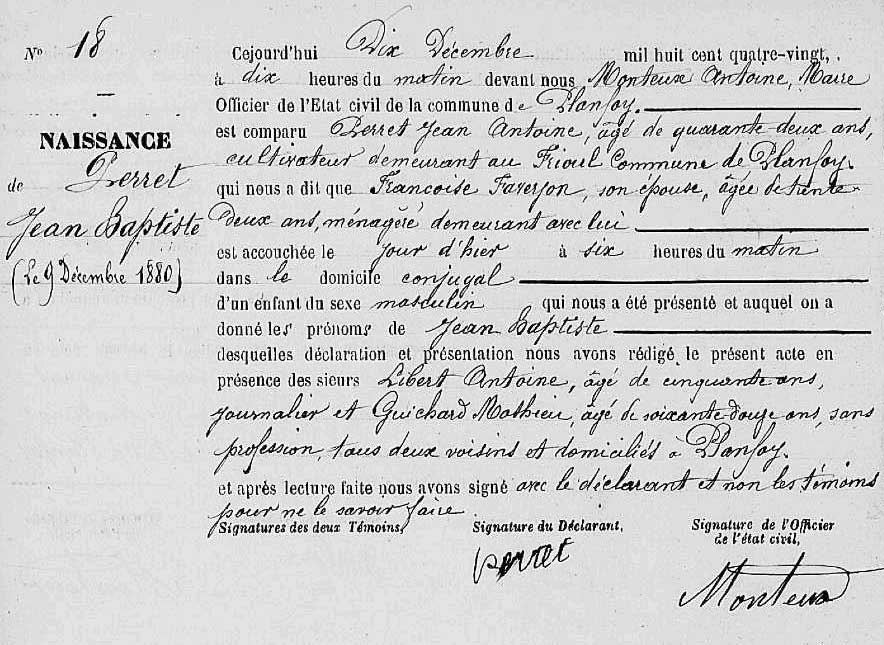 No 18
NAISSANCE
de Perret
Jean Baptiste
(Le 9 Décembre 1880)
Cejourd'hui Dix Décembre mil huit cent quatre-vingt,
à dix heures du matin devant nous Monteux Antoine, Maire
Officier de l'Etat civil de la commune de Planfoy.
est comparu Perret Jean Antoine, âgé de quarante deux ans,
cultivateur demeurant au Commune de Planfoy.
qui nous a dit que Francoise Faverjon, son épouse, âgée de trente
deux ans, ménagère demeurant avec lui
est accouchée le jour d'hier à six heures du matin
dans le domicile conjugal
d'un enfant du sexe masculin qui nous a été présenté et auquel on a
donné les prénoms de Jean Baptiste
desquelles déclaration et présentation nous avons rédigé le présent acte en
présence des sieurs Libert Antoine, âgé de cinquante ans,
journalier et Guichard Mathieu, âgé de soixante-douze ans, sans
profession, tous deux voisins et domiciliés à Planfoy.
et après lecture faite nous avons signé avec le déclarant et non les témoins
pour ne le savoir faire.
Signatures des deux Témoins, Signature du Déclarant, Signature de l'Officier
de l'état civil,
perret
Monteux